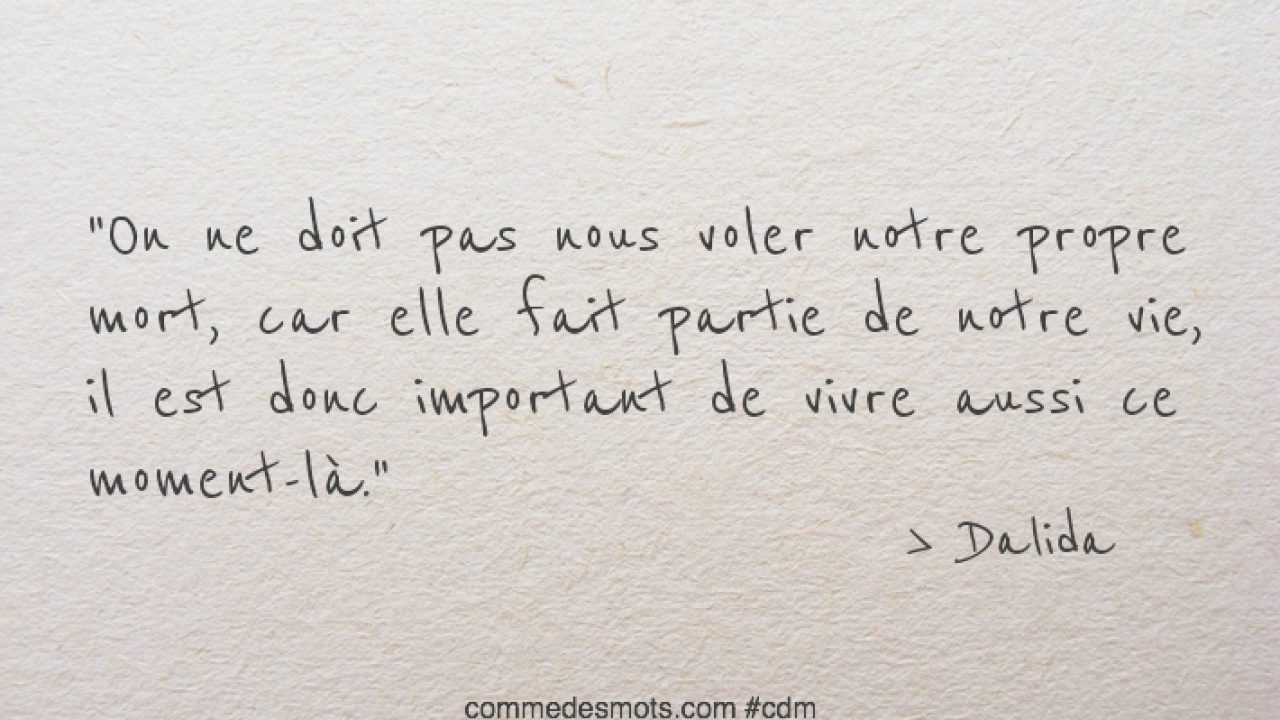 "On ne doit pas nous voler notre propre
mort, car elle fait partie de notre vie,
il est donc important de vivre aussi ce
moment-là."
> Dalida
commedesmots.com #cdm